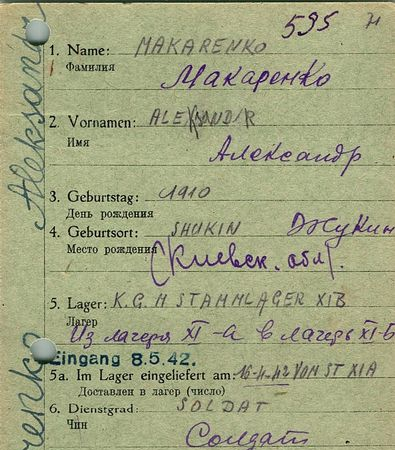 535 И
1. Name: MAKARENKO
Фамилия
Макаренко
2. Vornamen: ALEKSANDER
Имя
Александр
3. Geburtstag: 1910
День рождения
4. Geburtsort: SHUKIN Жукин
Место рождения
(Киевск. обл.
5. Lager: K.G.M STAMMLAGER XIB
Лагер
Из лагеря XI-А в лагерь XI-Б
Eingang 8.5.42.
5a. Im Lager eingeliefert am: 16.4.42 VON ST XIA
Доставлен в лагер (число)
6. Dienstgrad: SOLDAT
Чин
Солдат
Aleksand
renko